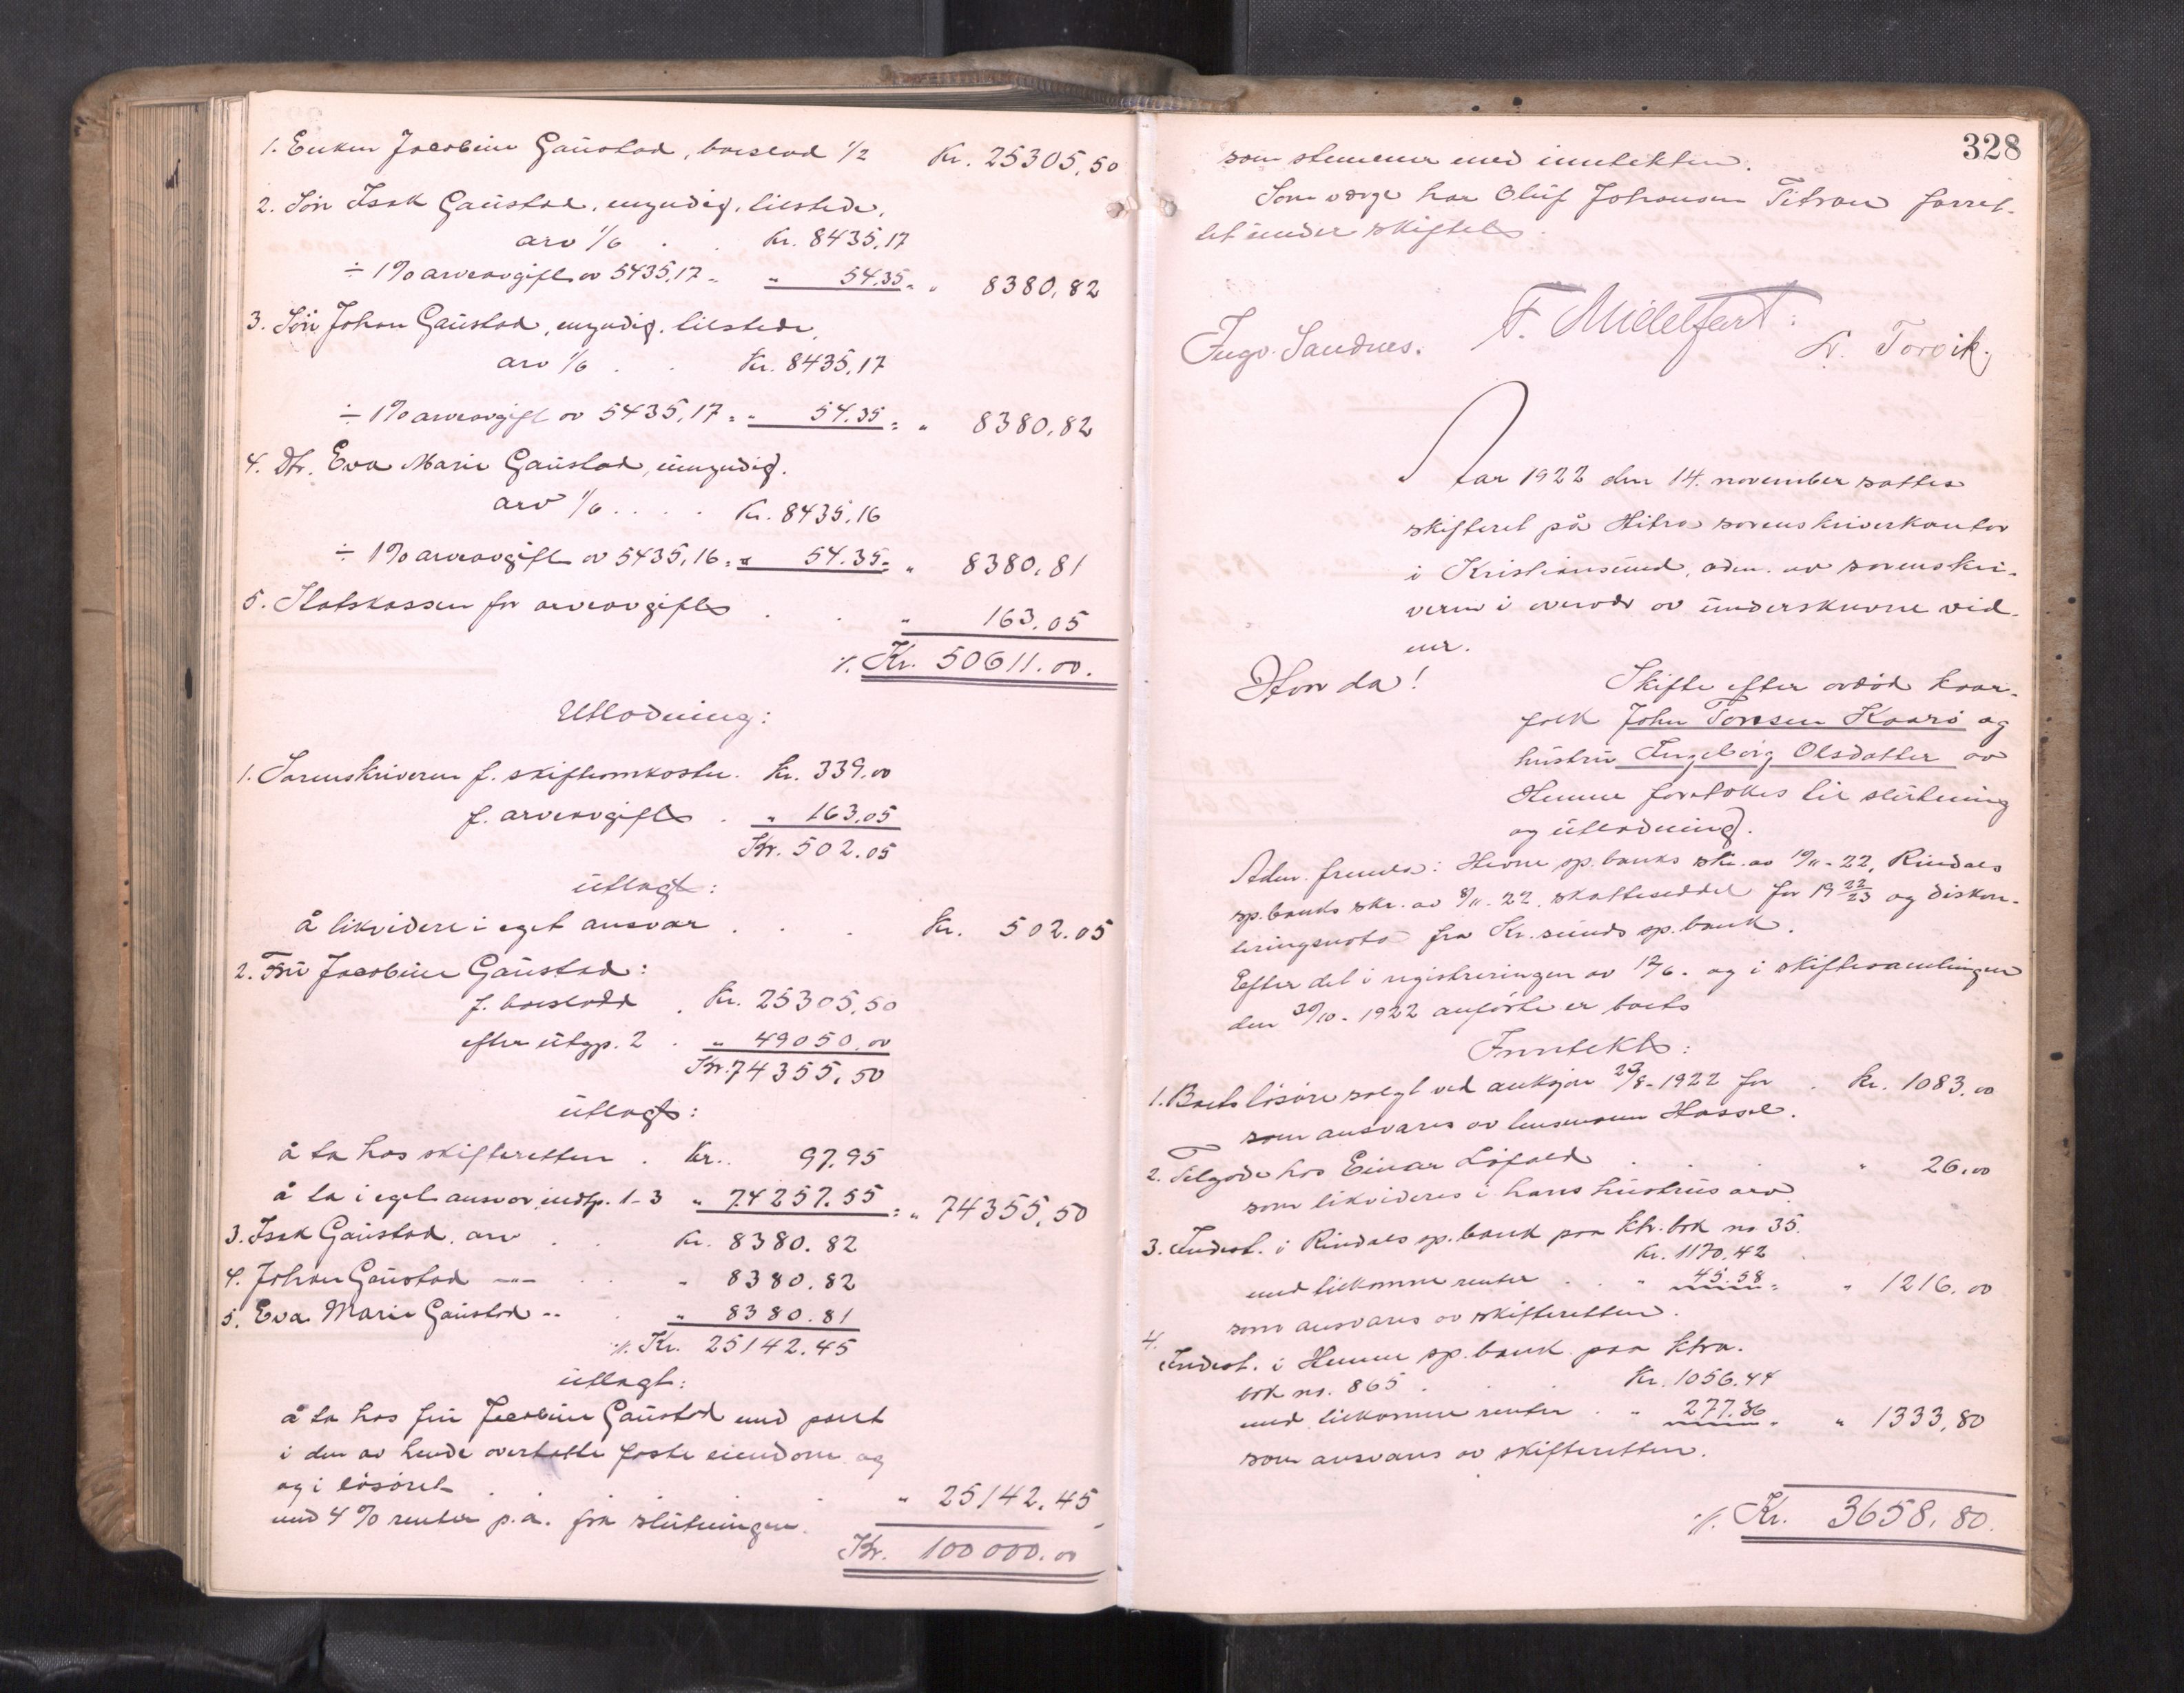 1. Enken Jacobine Gaustad, boeslod 1/2 Kr. 25305,50
2. Søn Isak Gaustad, umyndig, tilstede,
arv 1/6 . . Kr. 8435,17
÷ 1% arveavgift av 5435,17 = " 54.35 = " 8380,82
3. Søn Johan Gaustad, umyndig, tilstede,
arv 1/6 . . Kr. 8435,17
÷ 1% arveavgift av 5435,17 = " 54.35 = " 8380,82
4. Dtr. Eva Marie Gaustad, umyndig.
arv 1/6 . . . . Kr. 8435,16
÷ 1% arveavgift av 5435,16 = " 54.35 = " 8380,81
5. Statskassen for arveavgift . . " 163.05
·/. Kr. 50611.00.
Utlodning:
1. Sorenskriveren f. skifteomkostn. Kr. 339.00
f. arveavgift . " 163.05
Kr. 502.05
utlagt:
å likvidere i eget ansvar . . . Kr. 502.05
2. Fru Jacobine Gaustad:
f. boeslodd . Kr. 25305,50
efter utgp. 2 . " 49050.00
Kr. 74355,50
utlagt:
å ta hos skifteretten . Kr. 97.95
å ta i eget ansvar indtp. 1-3 " 74257.55 = " 74355,50
3. Isak Gaustad, arv . . Kr. 8380.82
4. Johan Gaustad -"- . . " 8380.82
5. Eva Marie Gaustad -"- . " 8380.81
·/. Kr. 25142.45
utlagt:
å ta hos fru Jacobine Gaustad med pant
i den av hende overtatte faste eiendom og
og i løsøret . . . . " 25142.45
med 4% renter p.a. fra slutningen.
Kr. 100000.00
328
som stemmer med inntekten.
Som verge har Oluf Johansen Titran forret-
tet under skiftet.
F. Midelfart.
Ingv. Sandnes. Torvik
Aar 1922 den 14. november sattes
skifteret på Hitra sorenskriverkontor
i Kristiansund, adm. av sorenskri-
veren i overvær av underskrevne vid-
ner.
Hvorda! Skifte efter avdød kaar-
folk John Toresen Kaarø og
hustru Ingeborg Olsdatter av
Hemne foretokes til slutning
og utlodning.
Adm. fremla: Hevne sp.banks skr. av 10/11-22, Rindals
sp.banks skr. av 8/11-22, skatteseddel for 19 22/23 og diskon-
teringsnota fra Kr.sunds sp.bank.
Efter det i registreringen av 12/6. og i skiftesamlingen
den 30/10-1922 anførte er boets
Inntekt:
1. Boets løsøre solgt ved auksjon 29/8-1922 for . Kr. 1083.00
som ansvares av lensmann Hassel.
2. Tilgode hos Einar Lofald . . . " 26.00
som likvideres i hans hustrus arv.
3. Indest. i Rindals sp.bank paa ktr.bok no 35.
Kr. 1170.42
med tilkomne renter . . " 45.58 = " 1216.00
som ansvares av skifteretten.
4. Indest. i Hemne sp.bank paa ktra.
bok no. 865 . . . Kr. 1056.44
med tilkomne renter . " 277.36 = " 1333,80
som ansvares av skifteretten.
·/. Kr. 3658.80.